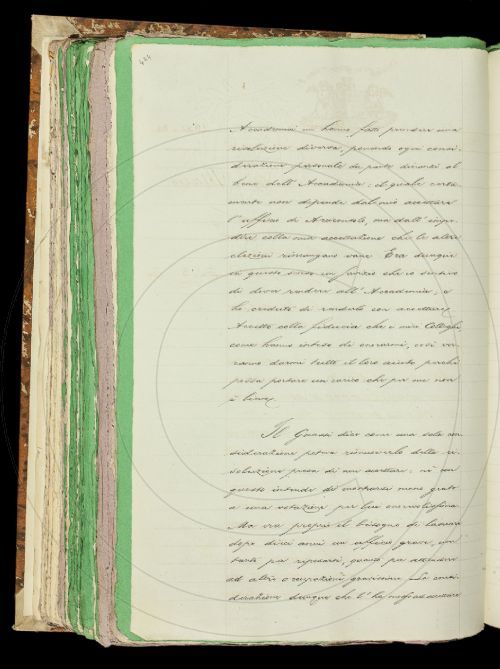 424
Accademia mi hanno fatto prendere una
risoluzione diversa, ponendo ogni consi
derazione personale da parte dinanzi al
bene dell'Accademia: il quale certa
mente non dipende dal mio accettare
l'ufficio di Arciconsolo, ma dall'impe
dire colla mia accettazione che le altre
elezioni rimangano vane. Era dunque
in questo senso un servizio che io sentivo
di dover rendere all'Accademia, e
ho creduto di renderlo con accettare.
Accetto colla fiducia che i miei Colleghi
come hanno inteso di onorarmi, così vor
ranno darmi tutto il loro aiuto perché
possa portare un carico che per me non
è lieve.
Il Guasti dice come una sola con
siderazione poteva rimuoverlo dalla ri
soluzione presa di non accettare: né con
questo intende di mostrarsi meno grato
a una votazione per lui onorevolissima.
Ma era proprio il bisogno di lasciare
dopo dieci anni un ufficio grave, non
tanto per riposarsi, quanto per attendere
ad altre occupazioni gravissime. La consi
derazione dunque che l'ha mosso ad accettare